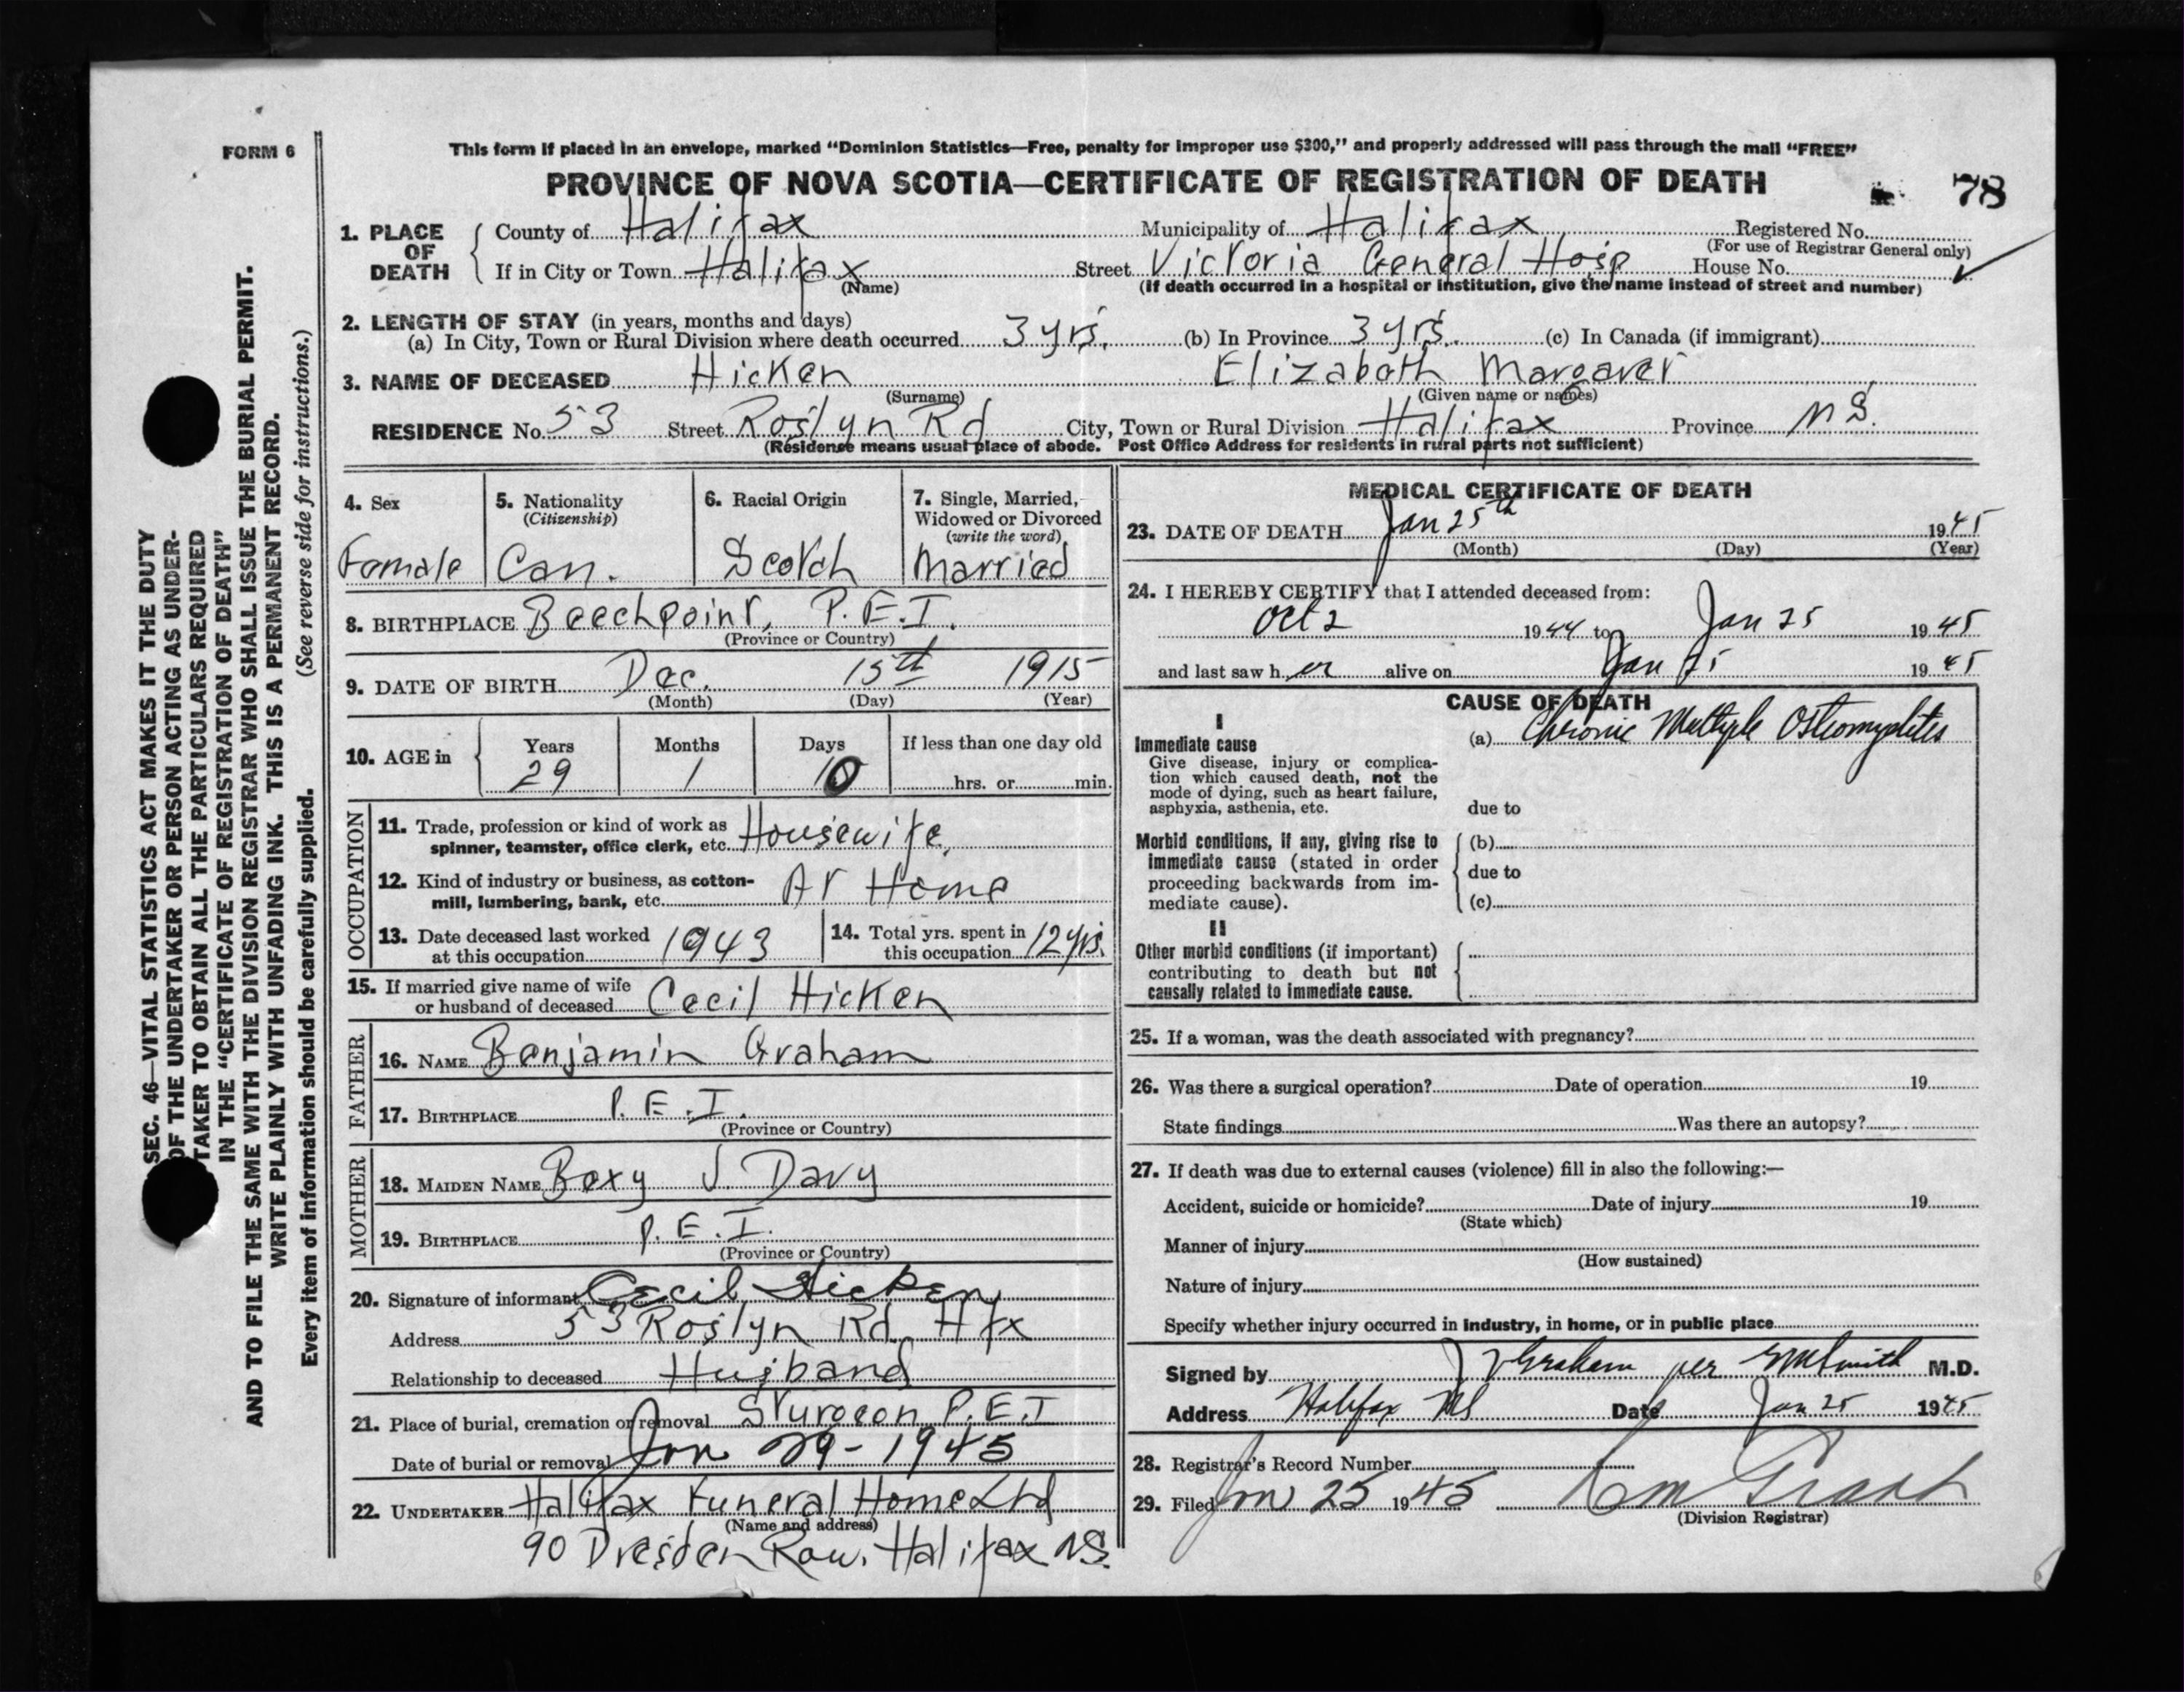 FORM 6
This form if placed in an envelope, marked "Dominion Statistics—Free, penalty for improper use $300," and properly addressed will pass through the mail "FREE"
PROVINCE OF NOVA SCOTIA—CERTIFICATE OF REGISTRATION OF DEATH
78
1. PLACE OF DEATH
County of Halifax Municipality of Halifax Registered No.
(For use of Registrar General only)
If in City or Town Halifax Street Victoria General Hosp House No.
(Name) (If death occurred in a hospital or institution, give the name instead of street and number)
2. LENGTH OF STAY (in years, months and days)
(a) In City, Town or Rural Division where death occurred 3 yrs. (b) In Province 3 yrs. (c) In Canada (if immigrant)
3. NAME OF DECEASED Hicken Elizabeth Margaret
(Surname) (Given name or names)
RESIDENCE No. 53 Street Roslyn Rd City, Town or Rural Division Halifax Province N S.
(Residence means usual place of abode. Post Office Address for residents in rural parts not sufficient)
4. Sex
Female
5. Nationality
(Citizenship)
Can.
6. Racial Origin
Scotch
7. Single, Married,
Widowed or Divorced
(write the word)
Married
8. BIRTHPLACE Beechpoint, P.E.I.
(Province or Country)
9. DATE OF BIRTH Dec. 15th 1915
(Month) (Day) (Year)
10. AGE in
Years Months Days If less than one day old
29 1 10 hrs. or min.
OCCUPATION
11. Trade, profession or kind of work as
spinner, teamster, office clerk, etc. Housewife
12. Kind of industry or business, as cotton-
mill, lumbering, bank, etc. At Home
13. Date deceased last worked
at this occupation 1943
14. Total yrs. spent in
this occupation 12 yrs.
15. If married give name of wife
or husband of deceased Cecil Hicken
FATHER
16. NAME Benjamin Graham
17. BIRTHPLACE P.E.I.
(Province or Country)
MOTHER
18. MAIDEN NAME Bexy J. Davy
19. BIRTHPLACE P.E.I.
(Province or Country)
20. Signature of informant Cecil Hicken
Address 53 Roslyn Rd, Hfx
Relationship to deceased Husband
21. Place of burial, cremation or removal Sturgeon P.E.I
Date of burial or removal Jan 29-1945
22. UNDERTAKER Halifax Funeral Home Ltd
(Name and address)
90 Dresden Row. Halifax N.S.
MEDICAL CERTIFICATE OF DEATH
23. DATE OF DEATH Jan 25th 1945
(Month) (Day) (Year)
24. I HEREBY CERTIFY that I attended deceased from:
Oct 2 1944 to Jan 25 1945
and last saw her alive on Jan 25 1945
CAUSE OF DEATH
I
Immediate cause
Give disease, injury or complica-
tion which caused death, not the
mode of dying, such as heart failure,
asphyxia, asthenia, etc.
(a) Chronic Multiple Osteomyelitis
due to
Morbid conditions, if any, giving rise to
immediate cause (stated in order
proceeding backwards from im-
mediate cause).
(b)
due to
(c)
II
Other morbid conditions (if important)
contributing to death but not
causally related to immediate cause.
25. If a woman, was the death associated with pregnancy?
26. Was there a surgical operation? Date of operation 19
State findings Was there an autopsy?
27. If death was due to external causes (violence) fill in also the following:—
Accident, suicide or homicide? Date of injury 19
(State which)
Manner of injury
(How sustained)
Nature of injury
Specify whether injury occurred in industry, in home, or in public place
Signed by J V Graham per M Smith M.D.
Address Halifax NS Date Jan 25 1945
28. Registrar's Record Number
29. Filed Jan 25 1945
(Division Registrar)
SEC. 46—VITAL STATISTICS ACT MAKES IT THE DUTY
OF THE UNDERTAKER OR PERSON ACTING AS UNDER-
TAKER TO OBTAIN ALL THE PARTICULARS REQUIRED
IN THE "CERTIFICATE OF REGISTRATION OF DEATH"
AND TO FILE THE SAME WITH THE DIVISION REGISTRAR WHO SHALL ISSUE THE BURIAL PERMIT.
WRITE PLAINLY WITH UNFADING INK. THIS IS A PERMANENT RECORD.
Every item of information should be carefully supplied. (See reverse side for instructions.)